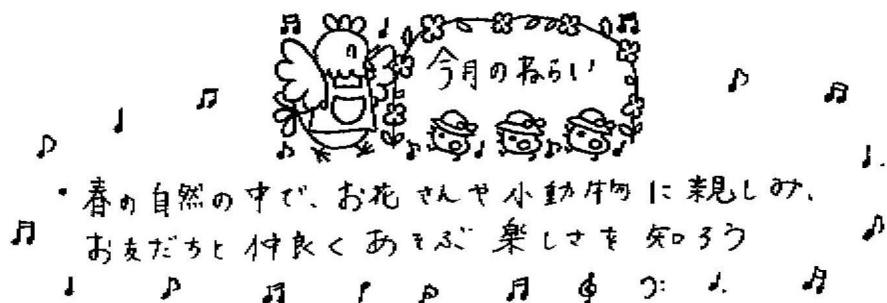 今月のねらい
・春の自然の中で、お花さんや小動物に親しみ、
お友だちと仲良くあそぶ楽しさを知ろう